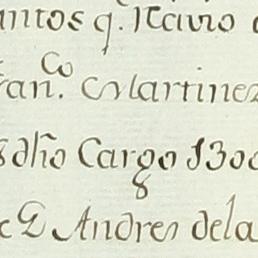 antos q.e Navio
an.co Martinez
dho Cargo 1300
D Andres dela